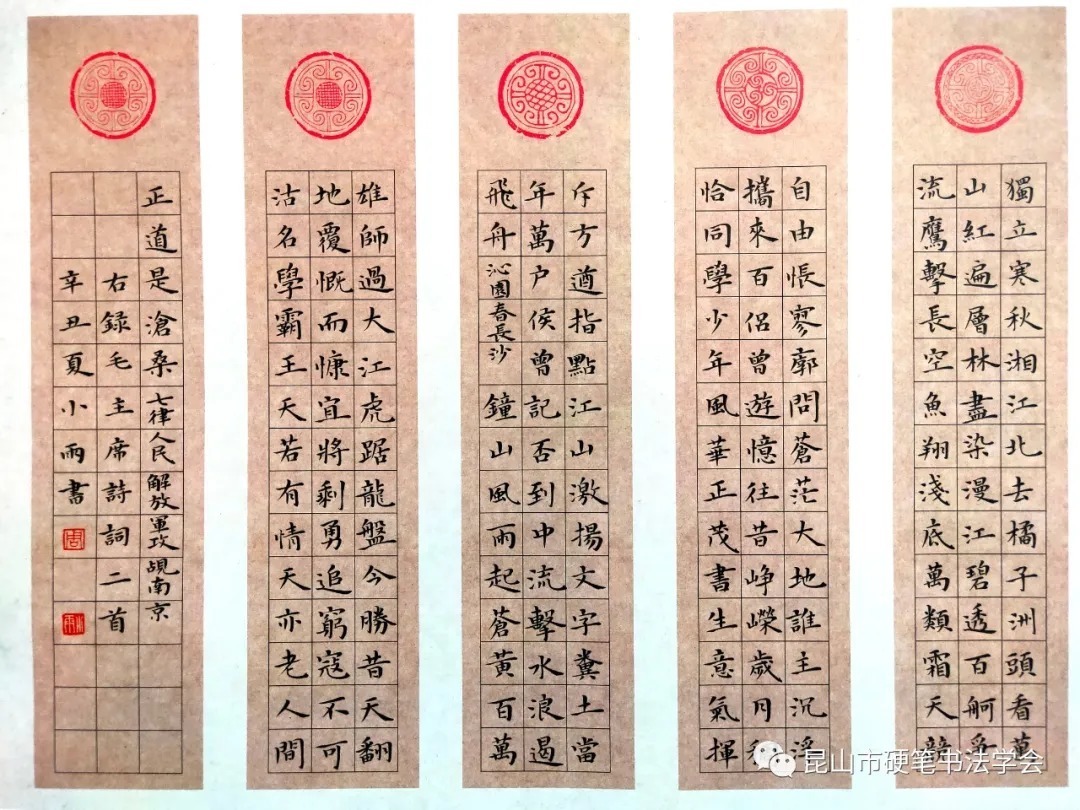 獨立寒秋湘江北去橘子洲頭看萬
山紅遍層林盡染漫江碧透百舸爭
流鷹擊長空魚翔淺底萬類霜天競
自由悵寥廓問蒼茫大地誰主沉浮
攜來百侶曾遊憶往昔崢嶸歲月
恰同學少年風華正茂書生意氣揮
斥方遒指點江山激揚文字糞土當
年萬户侯曾記否到中流擊水浪遏
飛舟沁園春長沙鐘山風雨起蒼黃百萬
雄師過大江虎踞龍盤今勝昔天翻
地覆慨而慷宜將剩勇追窮寇不可
沽名學霸王天若有情天亦老人間
正道是滄桑七律人民解放軍攻覘南京
右録毛主席詩詞二首
辛丑夏小雨書
周
小雨
昆山市硬笔书法学会